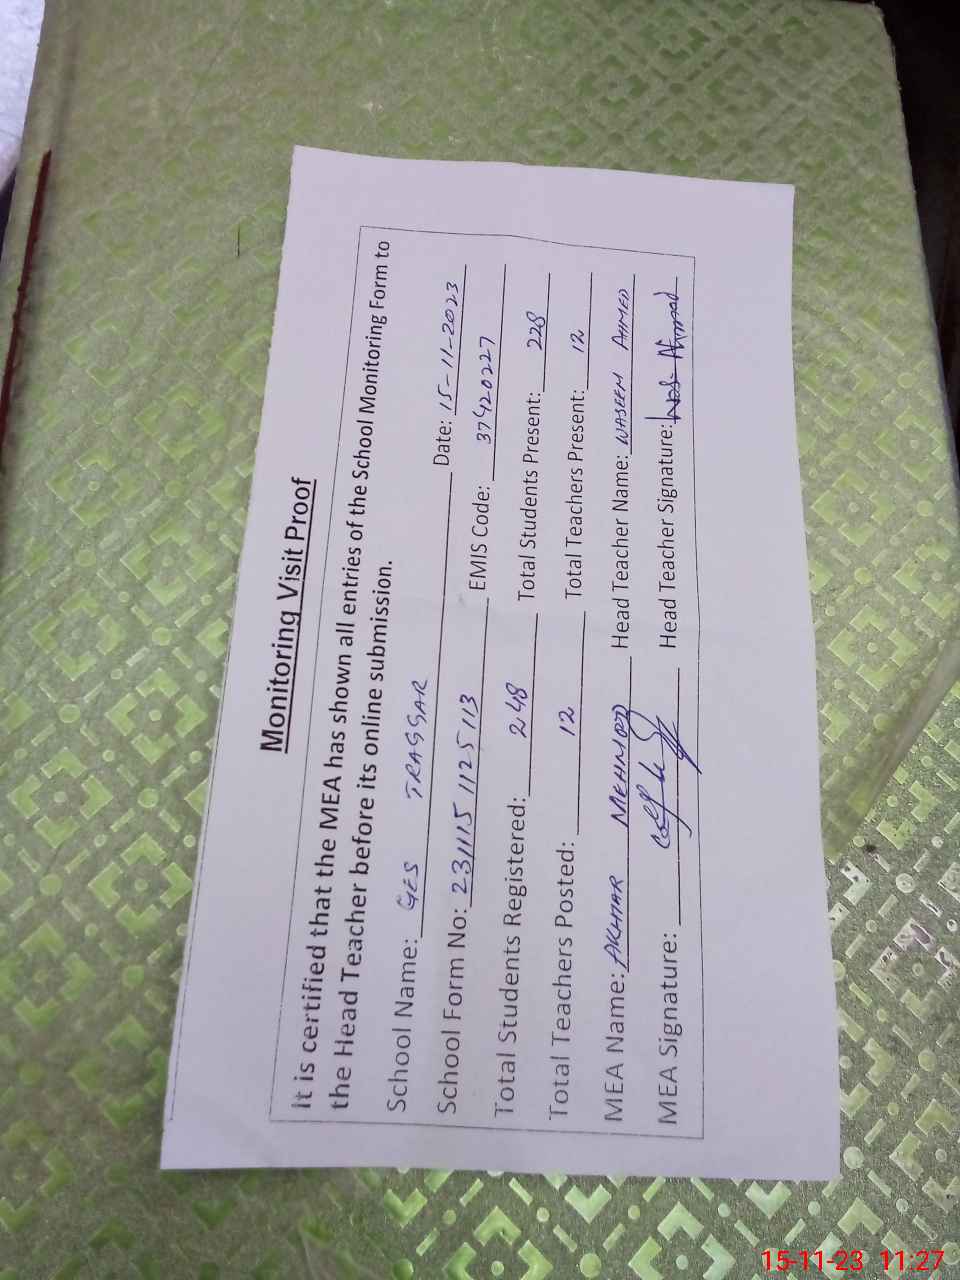 Monitoring Visit Proof
It is certified that the MEA has shown all entries of the School Monitoring Form to
the Head Teacher before its online submission.
School Name: GES TRAGGAR Date: 15-11-2023
School Form No: 231115 1125 113 EMIS Code: 37420227
Total Students Registered: 248 Total Students Present: 228
Total Teachers Posted: 12 Total Teachers Present: 12
MEA Name: AKHTAR MEHMOOD Head Teacher Name: WASEEM AHMED
MEA Signature: Head Teacher Signature: Ahmad
15-11-23 11:27